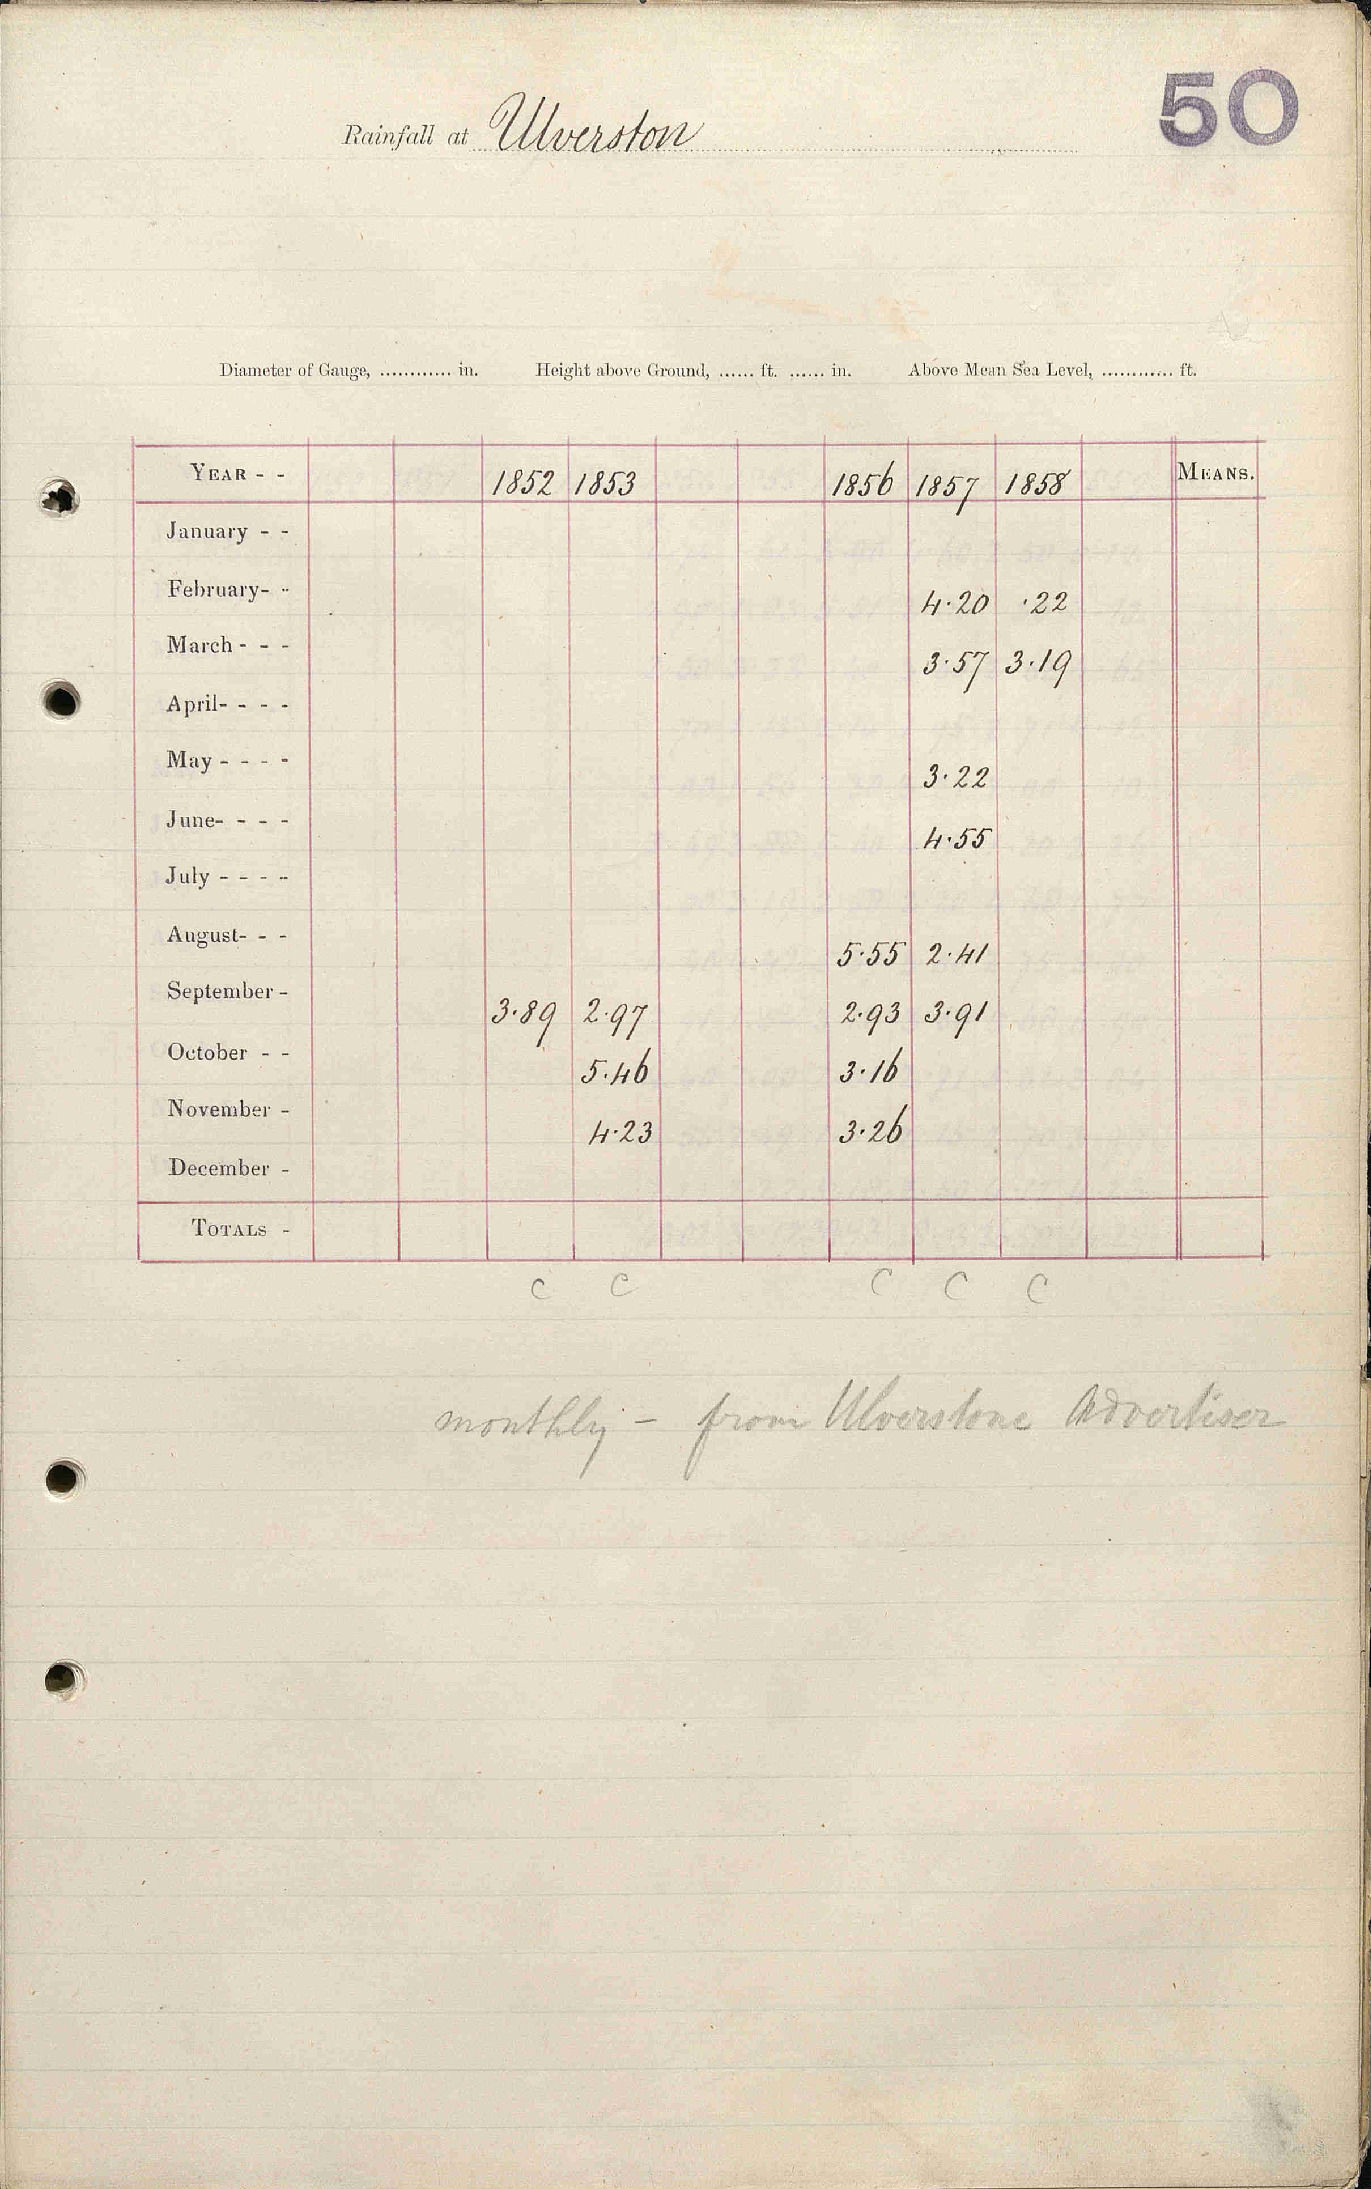 50
Rainfall at Ulverston
Diameter of Gauge, ............ in. Height above Ground, ...... ft. ...... in. Above Mean Sea Level, ............ ft.
YEAR - - 1852 1853 1856 1857 1858 MEANS.
January - -
February- - 4.20 .22
March - - - 3.57 3.19
April- - - -
May - - - - 3.22
June- - - - 4.55
July - - - -
August- - - 5.55 2.41
September - 3.89 2.97 2.93 3.91
October - - 5.46 3.16
November - 4.23 3.26
December -
TOTALS -
C C C C C
monthly - from Ulverstone Advertiser